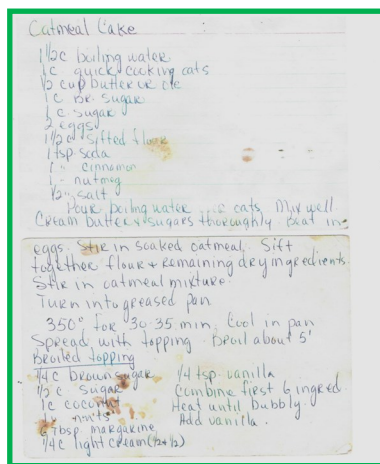 Oatmeal Cake
1 1/2 c boiling water
1 c quick cooking oats
1/2 cup butter or ole
1 c Br. Sugar
1 c Sugar
2 eggs
1 1/2 c sifted flour
1 tsp soda
1 " cinnamon
1 " nutmeg
1/2 " salt
Pour boiling water oats. Mix well.
Cream butter & sugars thoroughly. Beat in
eggs. Stir in soaked oatmeal. Sift
together flour & remaining dry ingredients.
Stir in oatmeal mixture.
Turn into greased pan
350° for 30-35 min. Cool in pan
Spread with topping. Broil about 5'
Broiled topping
1/4 c brown sugar
1/2 c sugar
1 c coconut
nuts
6 tbsp. margarine
1/4 c light cream (1/2 & 1/2)
1/4 tsp. vanilla
Combine first 6 ingred
Heat until bubbly.
Add vanilla.